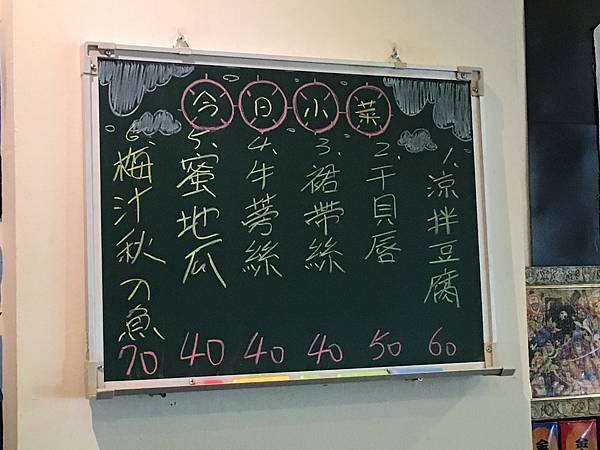 今日小菜
1. 涼拌豆腐 60
2. 干貝唇 50
3. 裙帶絲 40
4. 牛蒡絲 40
5. 蜜地瓜 40
6. 梅汁秋刀魚 70
金
金